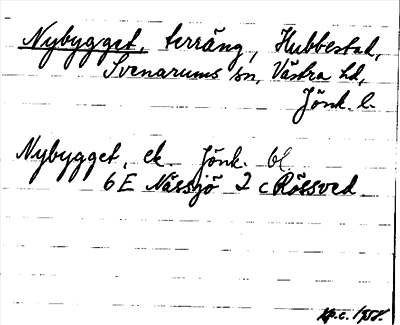 Nybygget, terräng, Hubbestad,
Svenarums sn, Västra hd,
Jönk. l.
Nybygget, ek. Jönk. bl
6E Nässjö 2 c Rössved
1958.